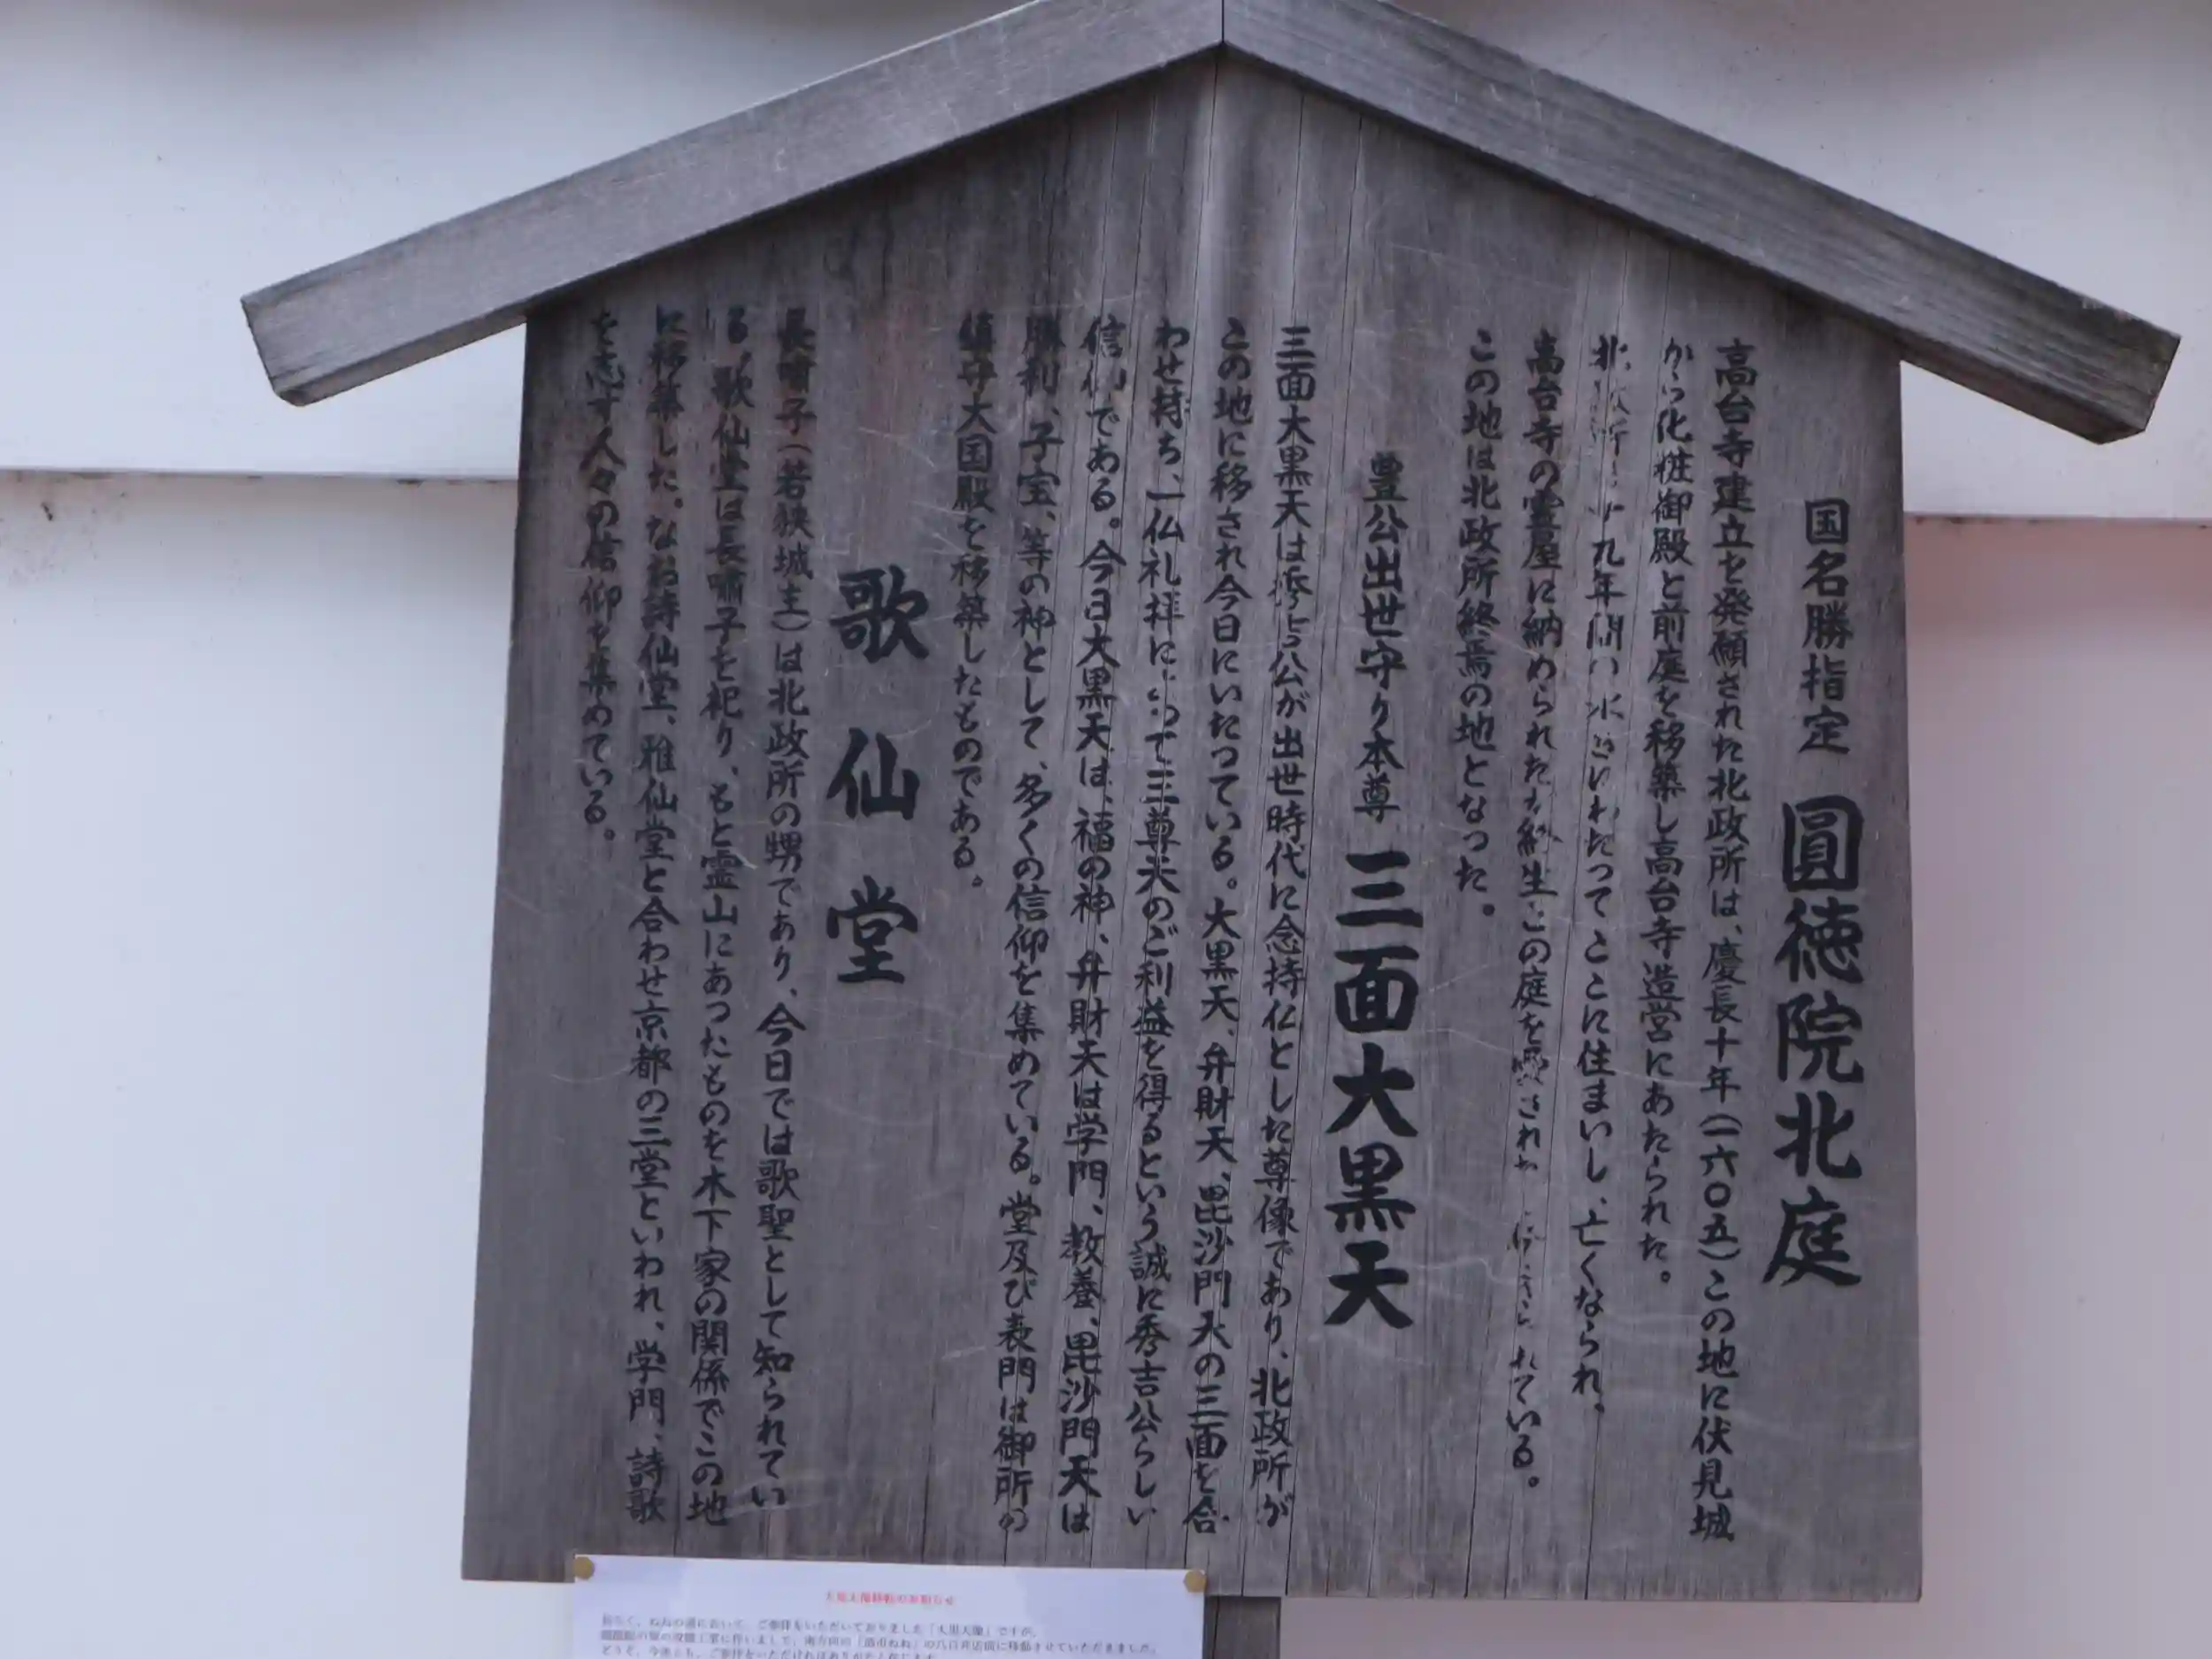 国名勝指定 圓徳院北庭
高台寺建立を発願された北政所は、慶長十年(一六〇五)この地に伏見城
から化粧御殿と前庭を移築し高台寺造営にあたられた。
北政所は十九年間の永きにわたってここに住まいし、亡くなられ。
高台寺の霊屋に納められたが終生この庭を されている。
この地は北政所終焉の地となった。
豊公出世守り本尊 三面大黒天
三面大黒天は秀吉公が出世時代に念持仏とした尊像であり、北政所が
この地に移され今日にいたっている。大黒天、弁財天、毘沙門天の三面を合
わせ持ち、一仏礼拝によって三尊天のご利益を得るという誠に秀吉公らしい
信仰である。今日大黒天は、福の神、弁財天は学門、教養、毘沙門天は
勝利、子宝、等の神として、多くの信仰を集めている。堂及び表門は御所の
鎮守大国殿を移築したものである。
歌仙堂
長嘯子(若狭城主)は北政所の甥であり、今日では歌聖として知られてい
る。歌仙堂は長嘯子を祀り、もと霊山にあったものを木下家の関係でこの地
に移築した。なお詩仙堂、雅仙堂と合わせ京都の三堂といわれ、学門、詩歌
を志す人々の信仰を集めている。